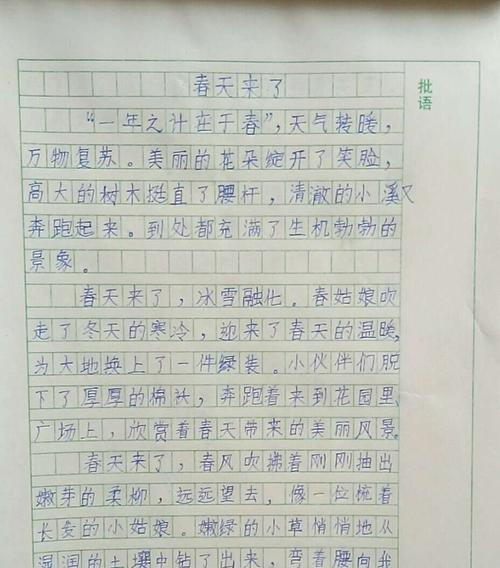 春天来了
批语
“一年之计在于春”，天气转暖，
万物复苏。美丽的花朵绽开了笑脸，
高大的树木挺直了腰杆，清澈的小溪又
奔跑起来。到处都充满了生机勃勃的
景象。
春天来了，冰雪融化。春姑娘吹
走了冬天的寒冷，迎来了春天的温暖，
为大地换上了一件绿装。小伙伴们脱
下了厚厚的棉袄，奔跑着来到花园里、
广场上，欣赏着春天带来的美丽风景。
春天来了，春风吹拂着刚刚抽出
嫩芽的柔柳，远远望去，像一位梳着
长发的小姑娘。嫩绿的小草悄悄地从
湿润的土壤中钻了出来，弯着腰向我